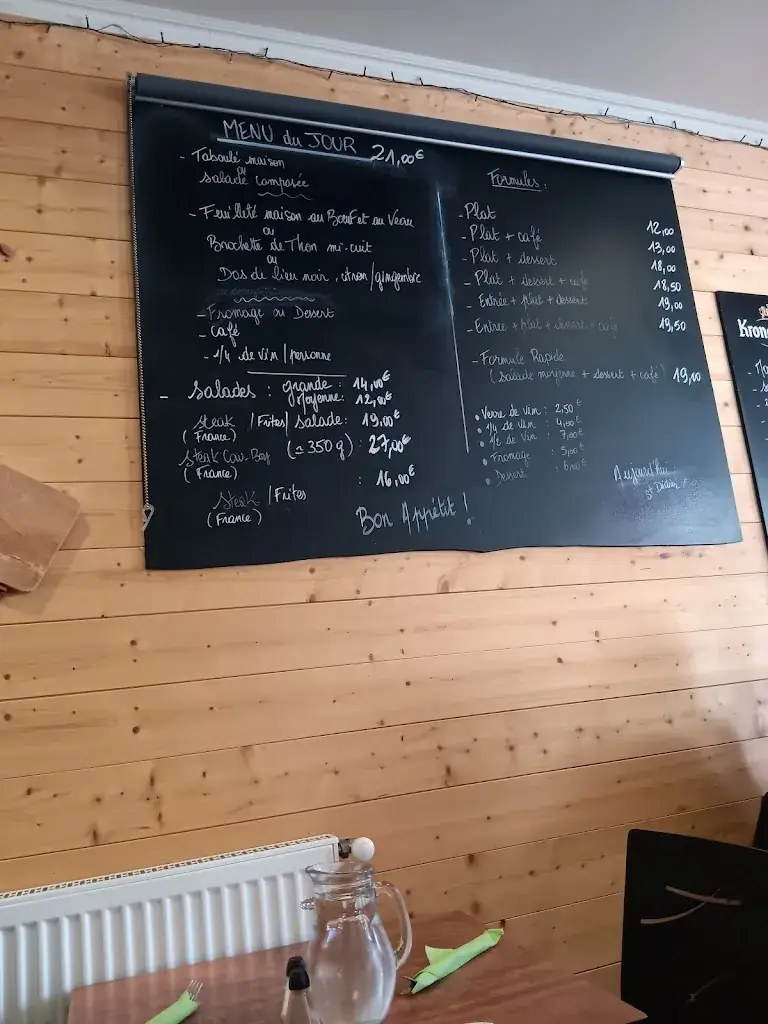 MENU du JOUR 21,00€
- Taboulé maison
ou
salade composée
- Feuilleté maison au Bœuf et au Veau
ou
Brochette de Thon mi-cuit
ou
Dos de lieu noir, citron/gingembre
- Fromage ou Dessert
- Café
- 1/4 de vin/personne
- Salades : grande : 14,00€
Moyenne : 12,00€
Steak /Frites/ salade : 19,00€
(France)
Steak Cow-Boy (≃ 350 g) : 27,00€
(France)
Steak /Frites : 16,00€
(France)
Bon Appétit !
Formules :
- Plat 12,00
- Plat + café 13,00
- Plat + dessert 18,00
- Plat + dessert + café 18,50
Entrée + plat + dessert 19,00
- Entrée + plat + dessert + café 19,50
- Formule Rapide
(salade moyenne + dessert + café) 19,00
• Verre de vin : 2,50€
• 1/4 de vin : 4,00€
• 1/2 de vin : 7,00€
• Fromage : 5,00€
• Dessert : 6,00€
Aujourd'hui :
St Didier
Kron